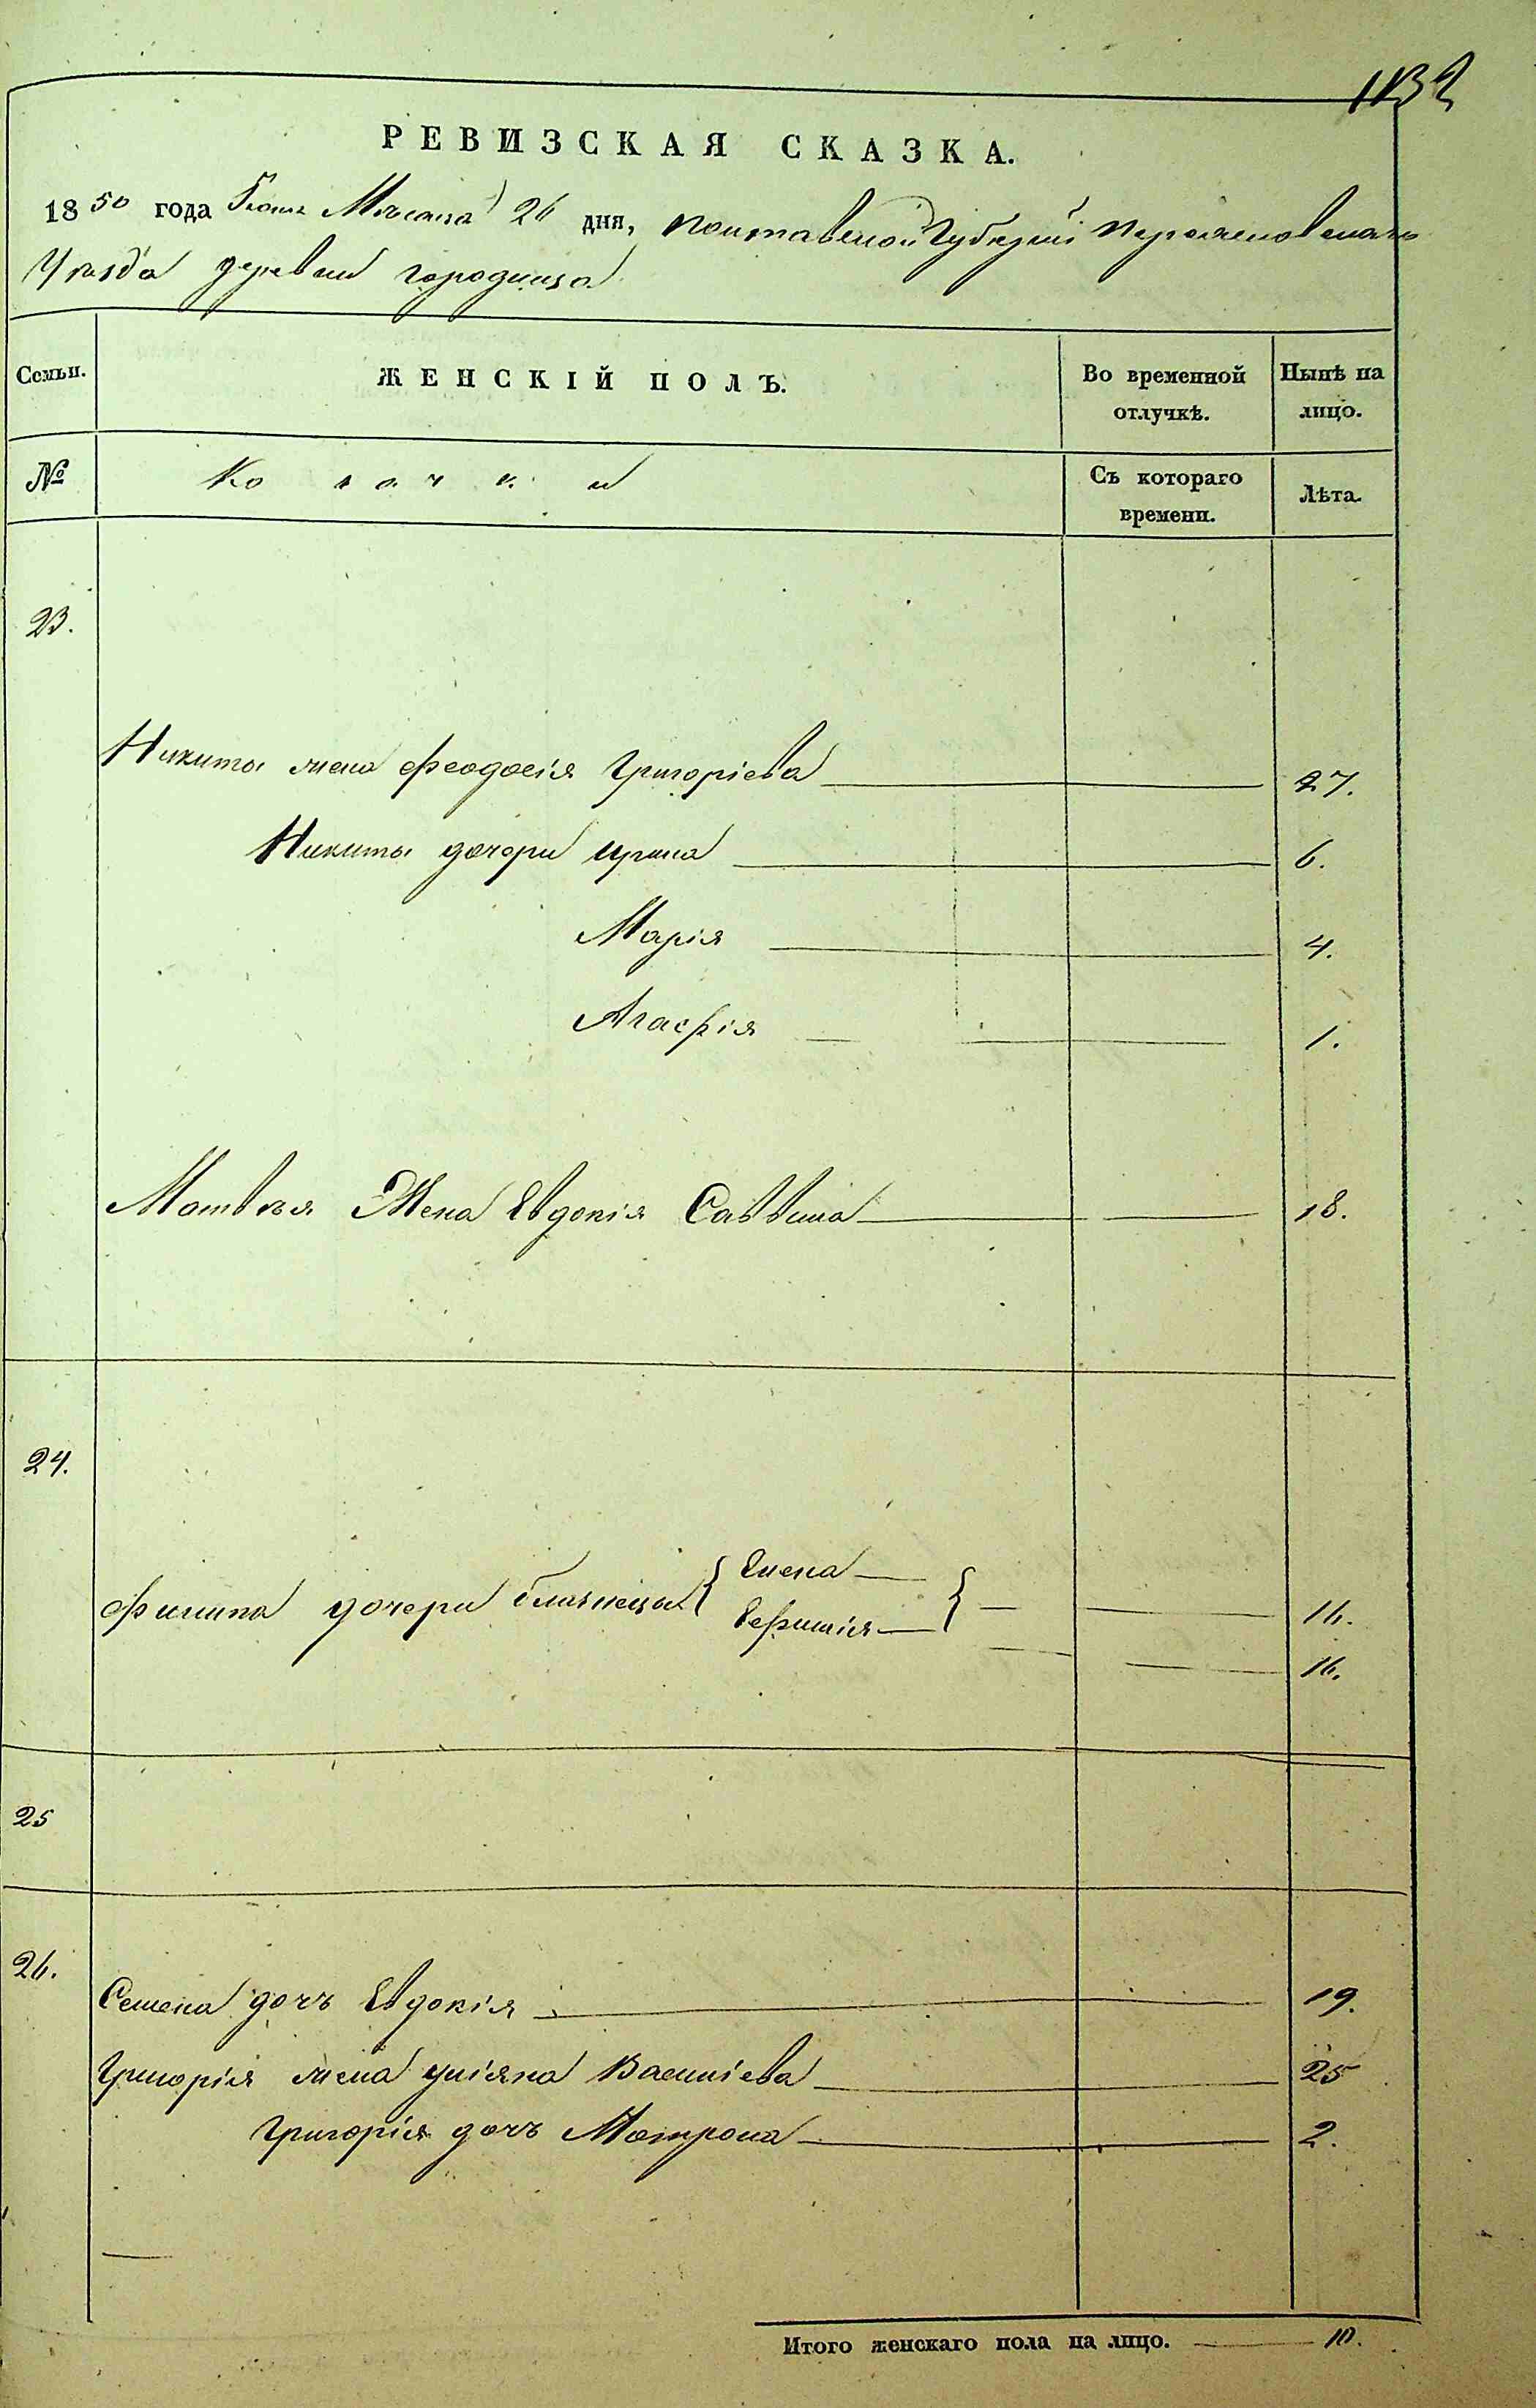 1132
РЕВИЗСКАЯ СКАЗКА.
1850 года Юня Месяца 26 дня, Полтавской Губерніи Переяславскаго
Уезда деревни Городища
Семьи. ЖЕНСКІЙ ПОЛЪ. Во временной отлучкѣ. Нынѣ на лицо.
№ Козачки Съ котораго времени. Лѣта.
23.
Никиты жена Феодосія Григоріева 27.
Никиты дочери Ирина 6.
Марія 4.
Агафія 1.
Матвея Жена Евдокія Саввина 18.
24.
Филипа дочери близнецы Елена 16.
Ефимія 16.
25
26.
Семена дочь Евдокія 19.
Григорія жена Уліяна Василіева 25
Григорія дочь Матрона 2.
Итого женскаго пола на лицо. 10.